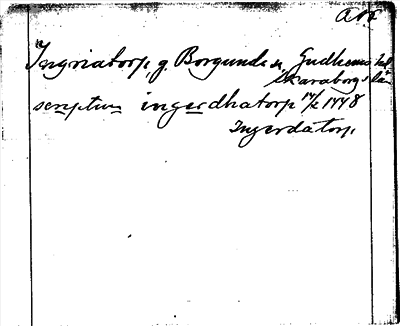 Ingridtorp, g. Borgunda sn, Gudhems hd
Skaraborgs län
scriptum ingerdhatorp 14/2 1448
Ingerdatorp